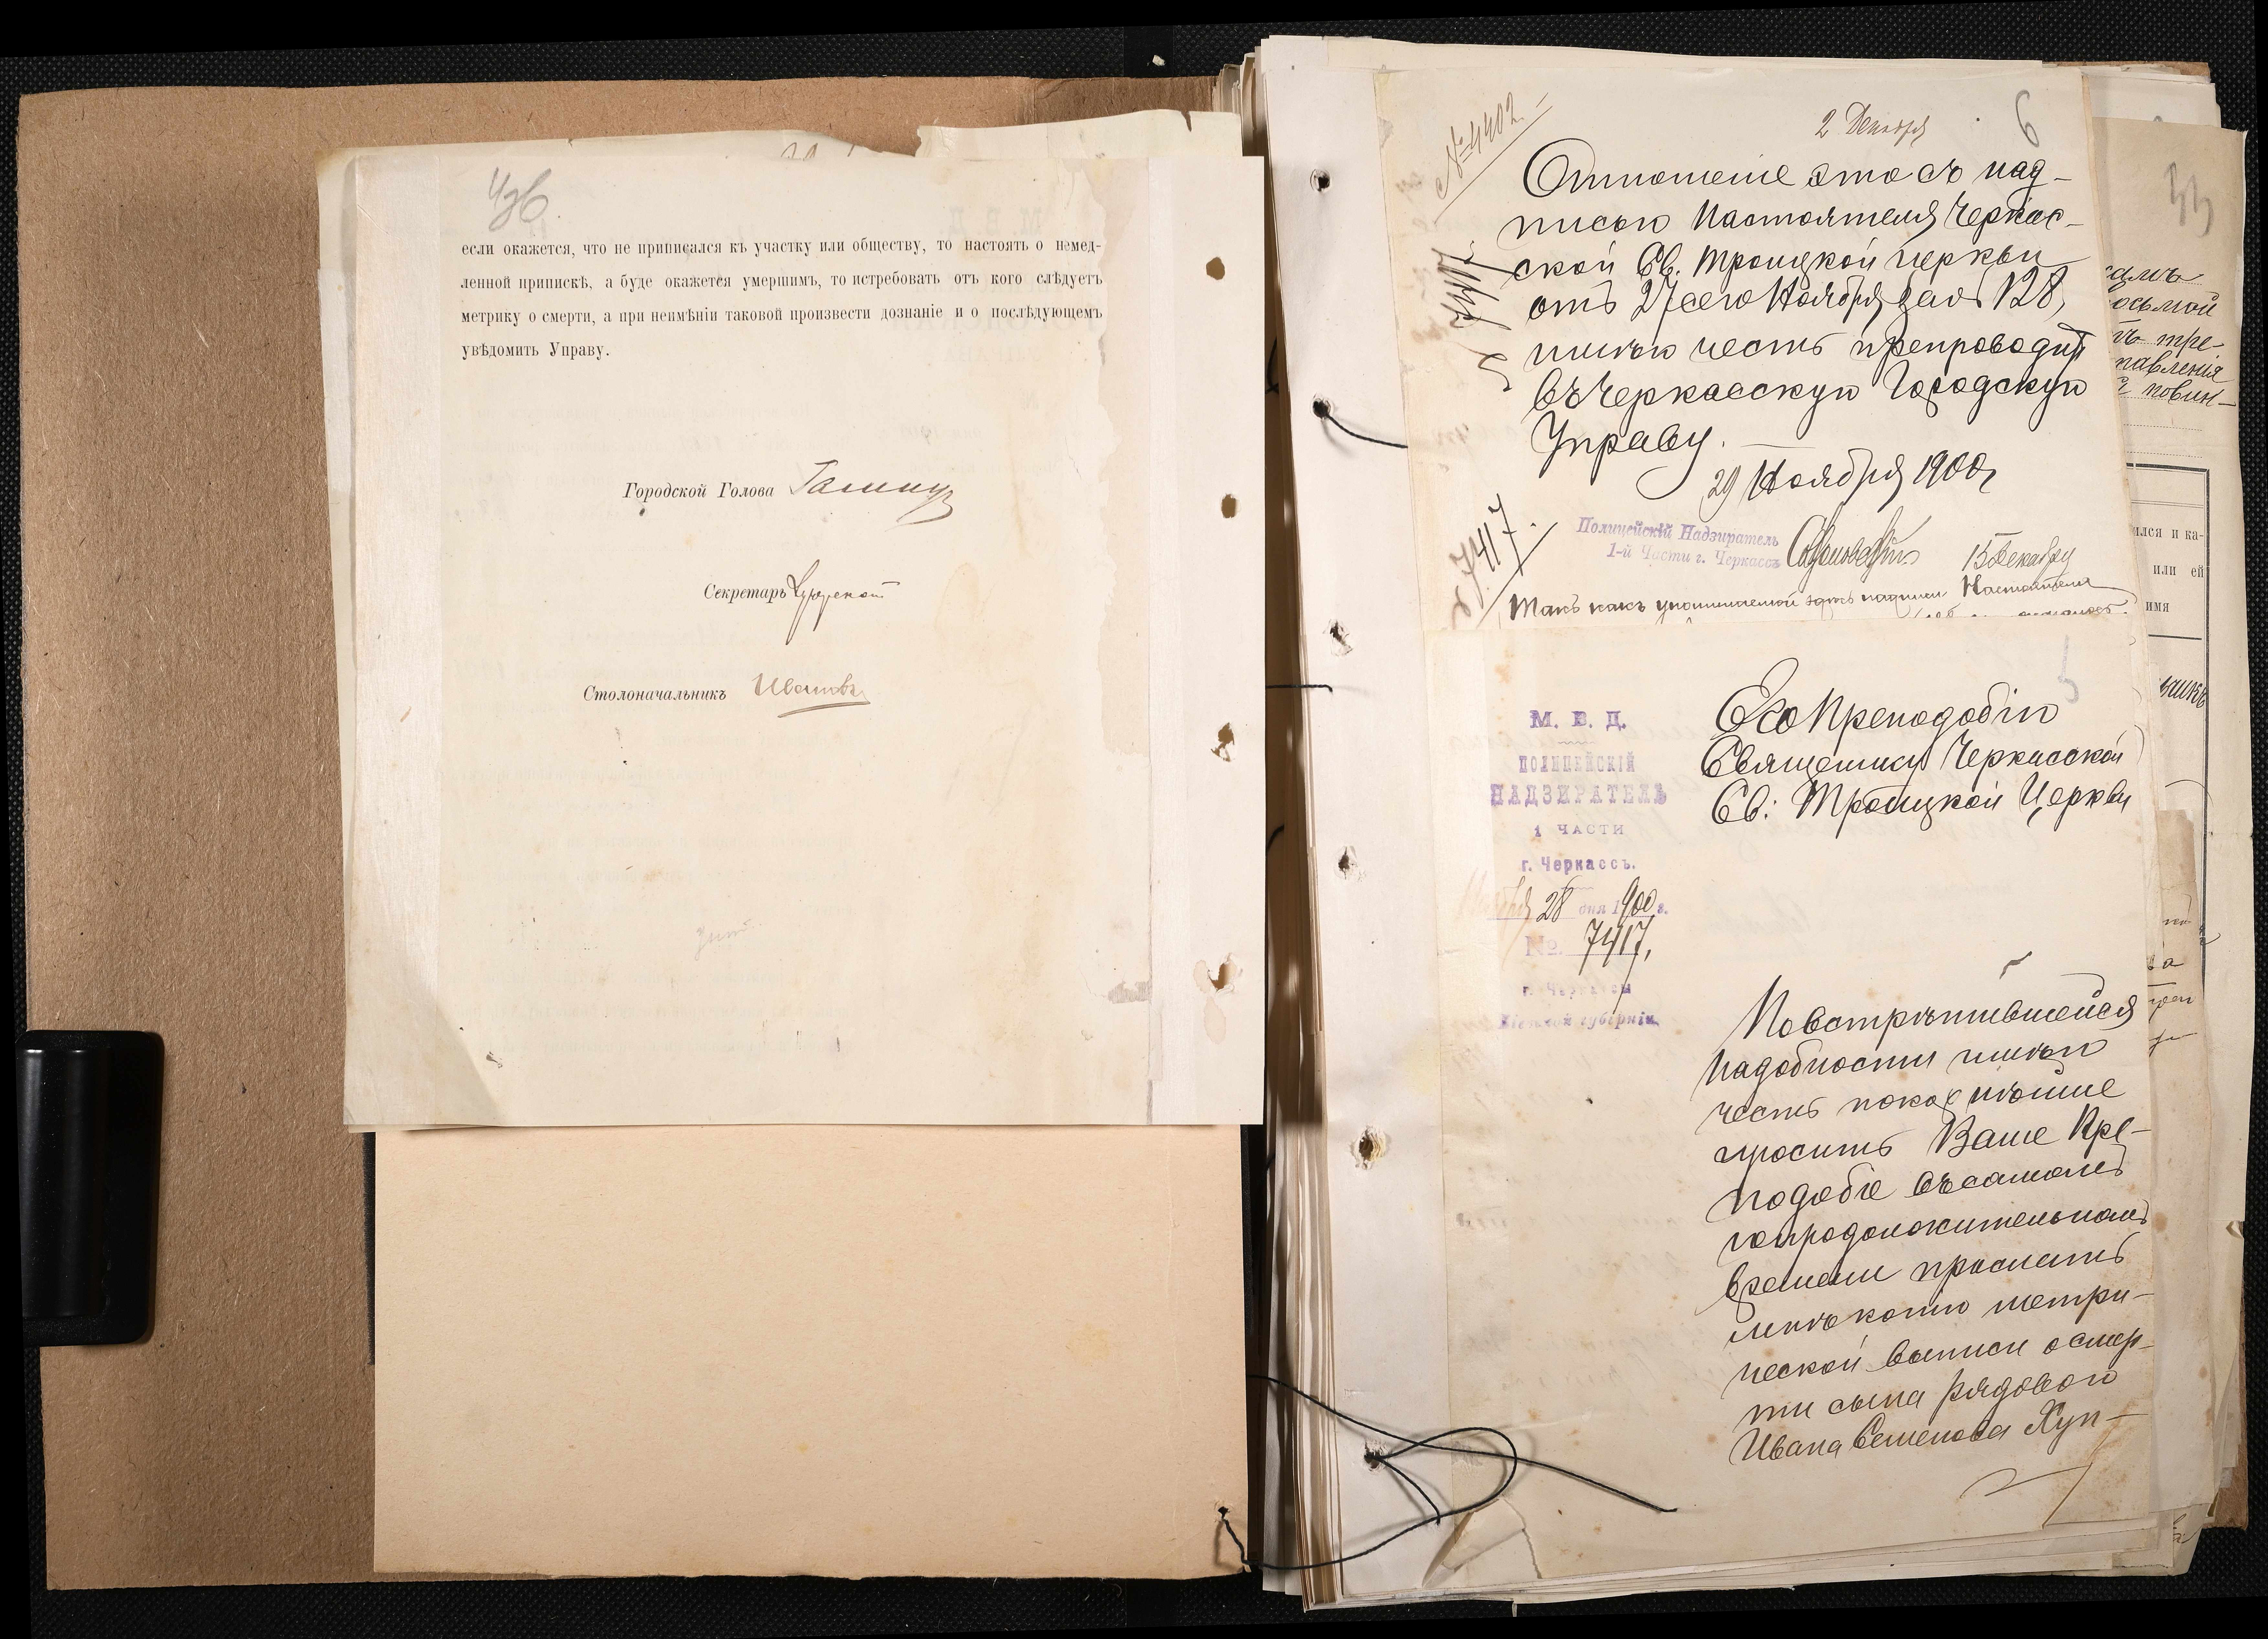 если окажется, что не приписался къ участку или обществу, то настоять о немед-
ленной припискѣ, а буде окажется умершимъ, то истребовать отъ кого слѣдуетъ
метрику о смерти, а при неимѣніи таковой произвести дознаніе и о послѣдующемъ
увѣдомить Управу.
Городской Голова
Секретарь
Столоначальникъ Ивановъ
№ 4402
2 Декабря
6
Отношеніе это съ над-
писью Настоятеля Черкас-
ской Св. Троицкой церкви
отъ 27 сего Ноября за № 128,
имѣю честь препроводить
въ Черкасскую Городскую
Управу.
29 Ноября 1900 г
Полицейскій Надзиратель
1-й Части г. Черкассъ
15 Декабря
7417
Такъ какъ упоминаемой здѣсь надписи Настоятеля
М. В. Д.
ПОЛИЦЕЙСКІЙ
НАДЗИРАТЕЛЬ
1 ЧАСТИ
г. Черкассъ.
28 дня 1900 г.
№ 7417,
г. Черкассы
Кіевской губерніи
5
Его Преподобію
Священнику Черкасской
Св: Троицкой Церкви
По встрѣтившейся
надобности имѣю
честь покорнѣйше
просить Ваше Пре-
подобіе въ самомъ
непродолжительномъ
времени прислать
мнѣ копію метри-
ческой выписи о смер-
ти сына рядового
Ивана Семенова Хуп-
33
осьмой
тре-
равленія
повин-
ился и ка-
или ей
имя